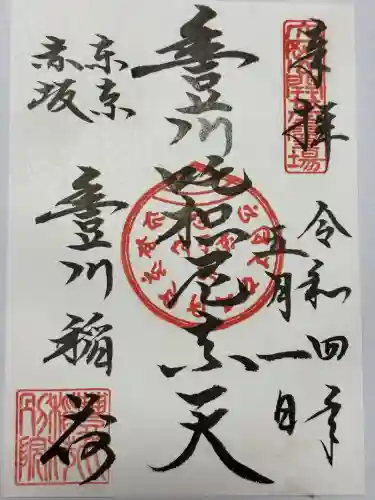 奉拝
令和四年
五月一日
豊川吒枳尼真天
東京
赤坂
豊川稲荷